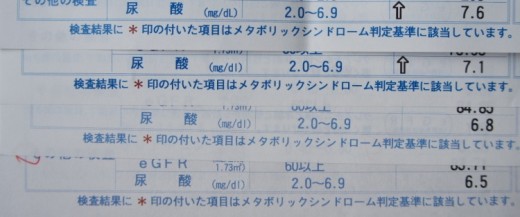 その他の検査
尿 酸 (mg/dL) 2.0～6.9 ⇧ 7.6
検査結果に * 印の付いた項目はメタボリックシンドローム判定基準に該当しています。
尿 酸 (mg/dl) 2.0～6.9 ⇧ 7.1
検査結果に * 印の付いた項目はメタボリックシンドローム判定基準に該当しています。
1.73㎡) 60以上
尿 酸 (mg/dl) 2.0～6.9 6.8
検査結果に * 印の付いた項目はメタボリックシンドローム判定基準に該当しています。
eGFR 1.73㎡) 60以上
尿 酸 (mg/dl) 2.0～6.9 6.5
検査結果に * 印の付いた項目はメタボリックシンドローム判定基準に該当しています。